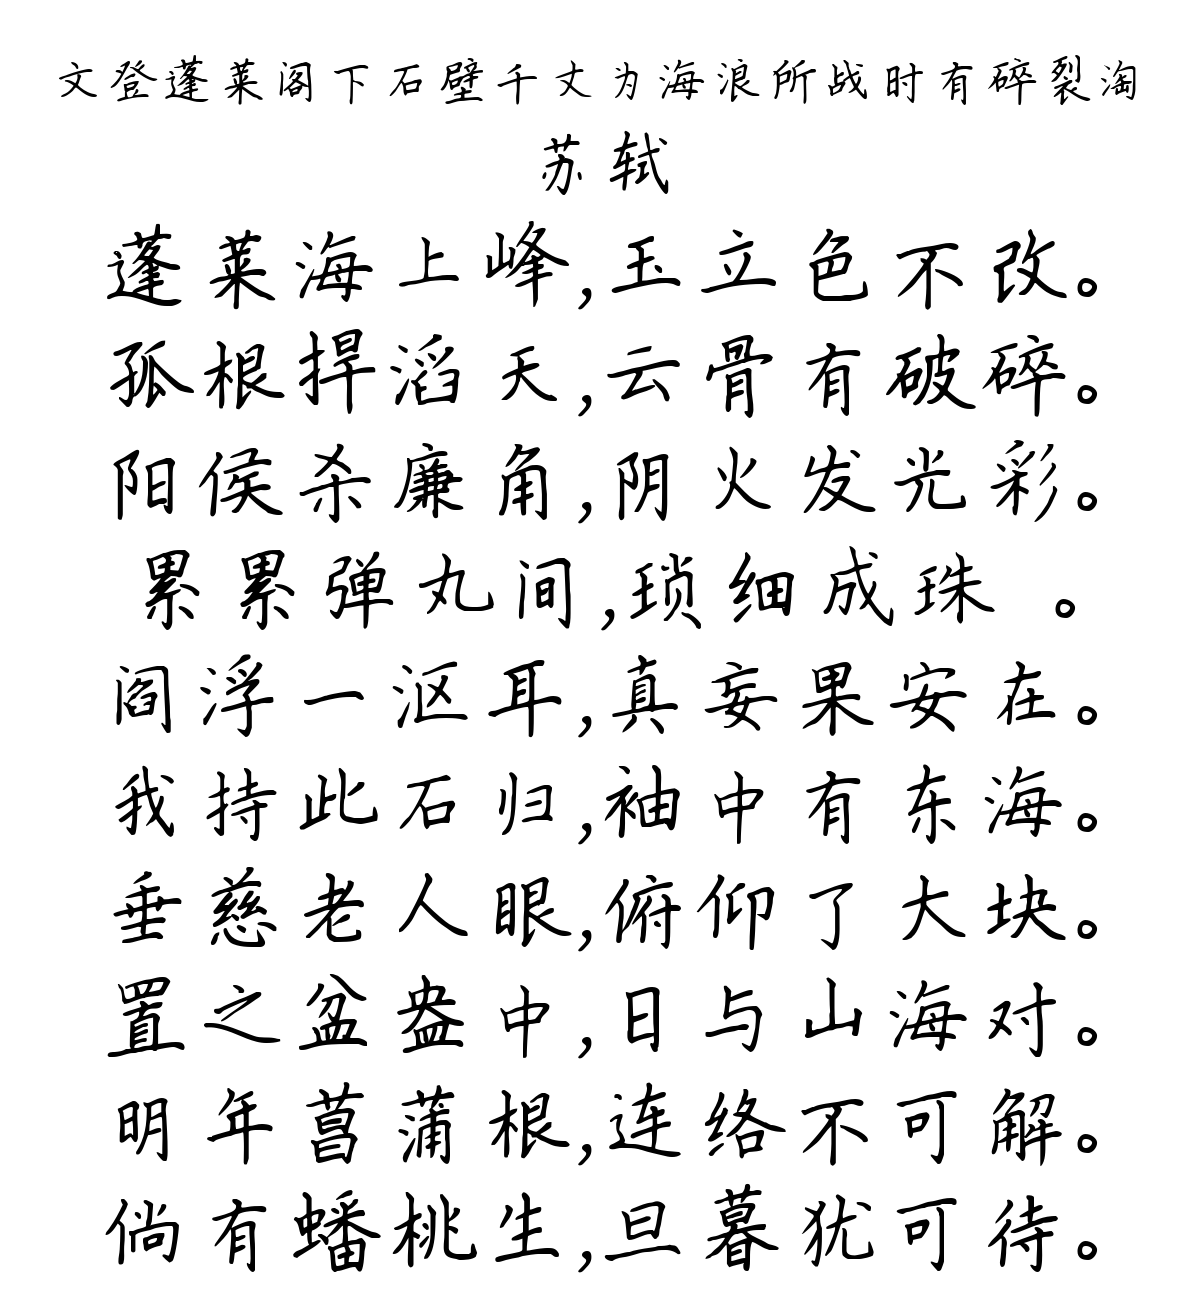 文登蓬莱阁下石壁千丈为海浪所战时有碎裂淘
苏轼
蓬莱海上峰,玉立色不改。
孤根捍滔天,云骨有破碎。
阳侯杀廉角,阴火发光彩。
累累弹丸间,琐细成珠 。
阎浮一沤耳,真妄果安在。
我持此石归,袖中有东海。
垂慈老人眼,俯仰了大块。
置之盆盎中,日与山海对。
明年菖蒲根,连络不可解。
倘有蟠桃生,旦暮犹可待。